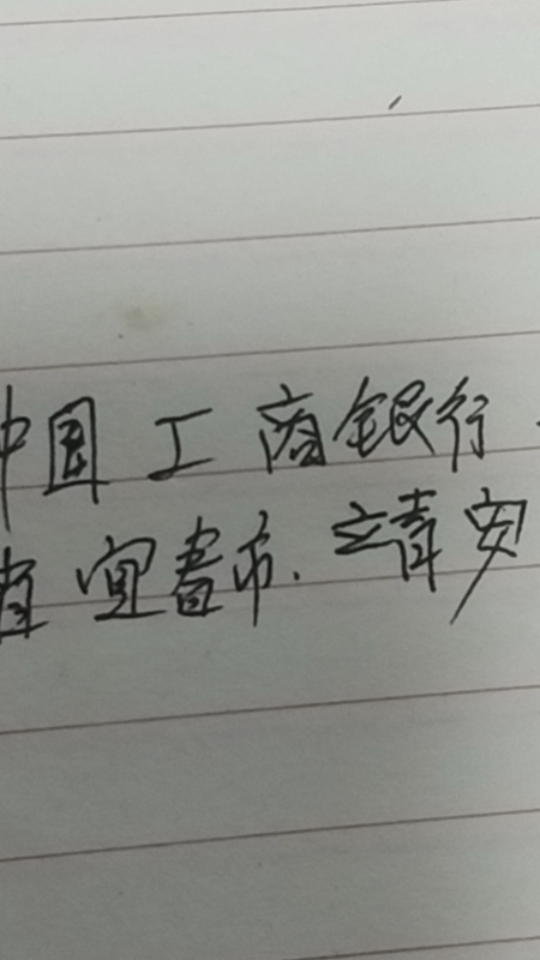 中国工商银行
省宜春市.靖安